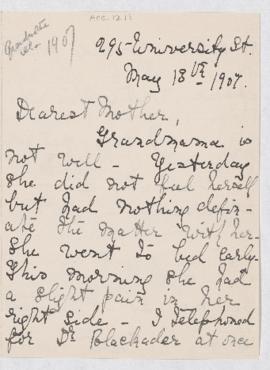 ACC. 1211
Graduate
1907
295- University St.
May 18th 1907.
Dearest Mother,
Grandmama is
not well - Yesterday
she did not feel herself
but had nothing defin-
ate the matter with her -
She went to bed early -
This morning she had
a slight pain in her
right side - I telephoned
for Dr Blackader at once